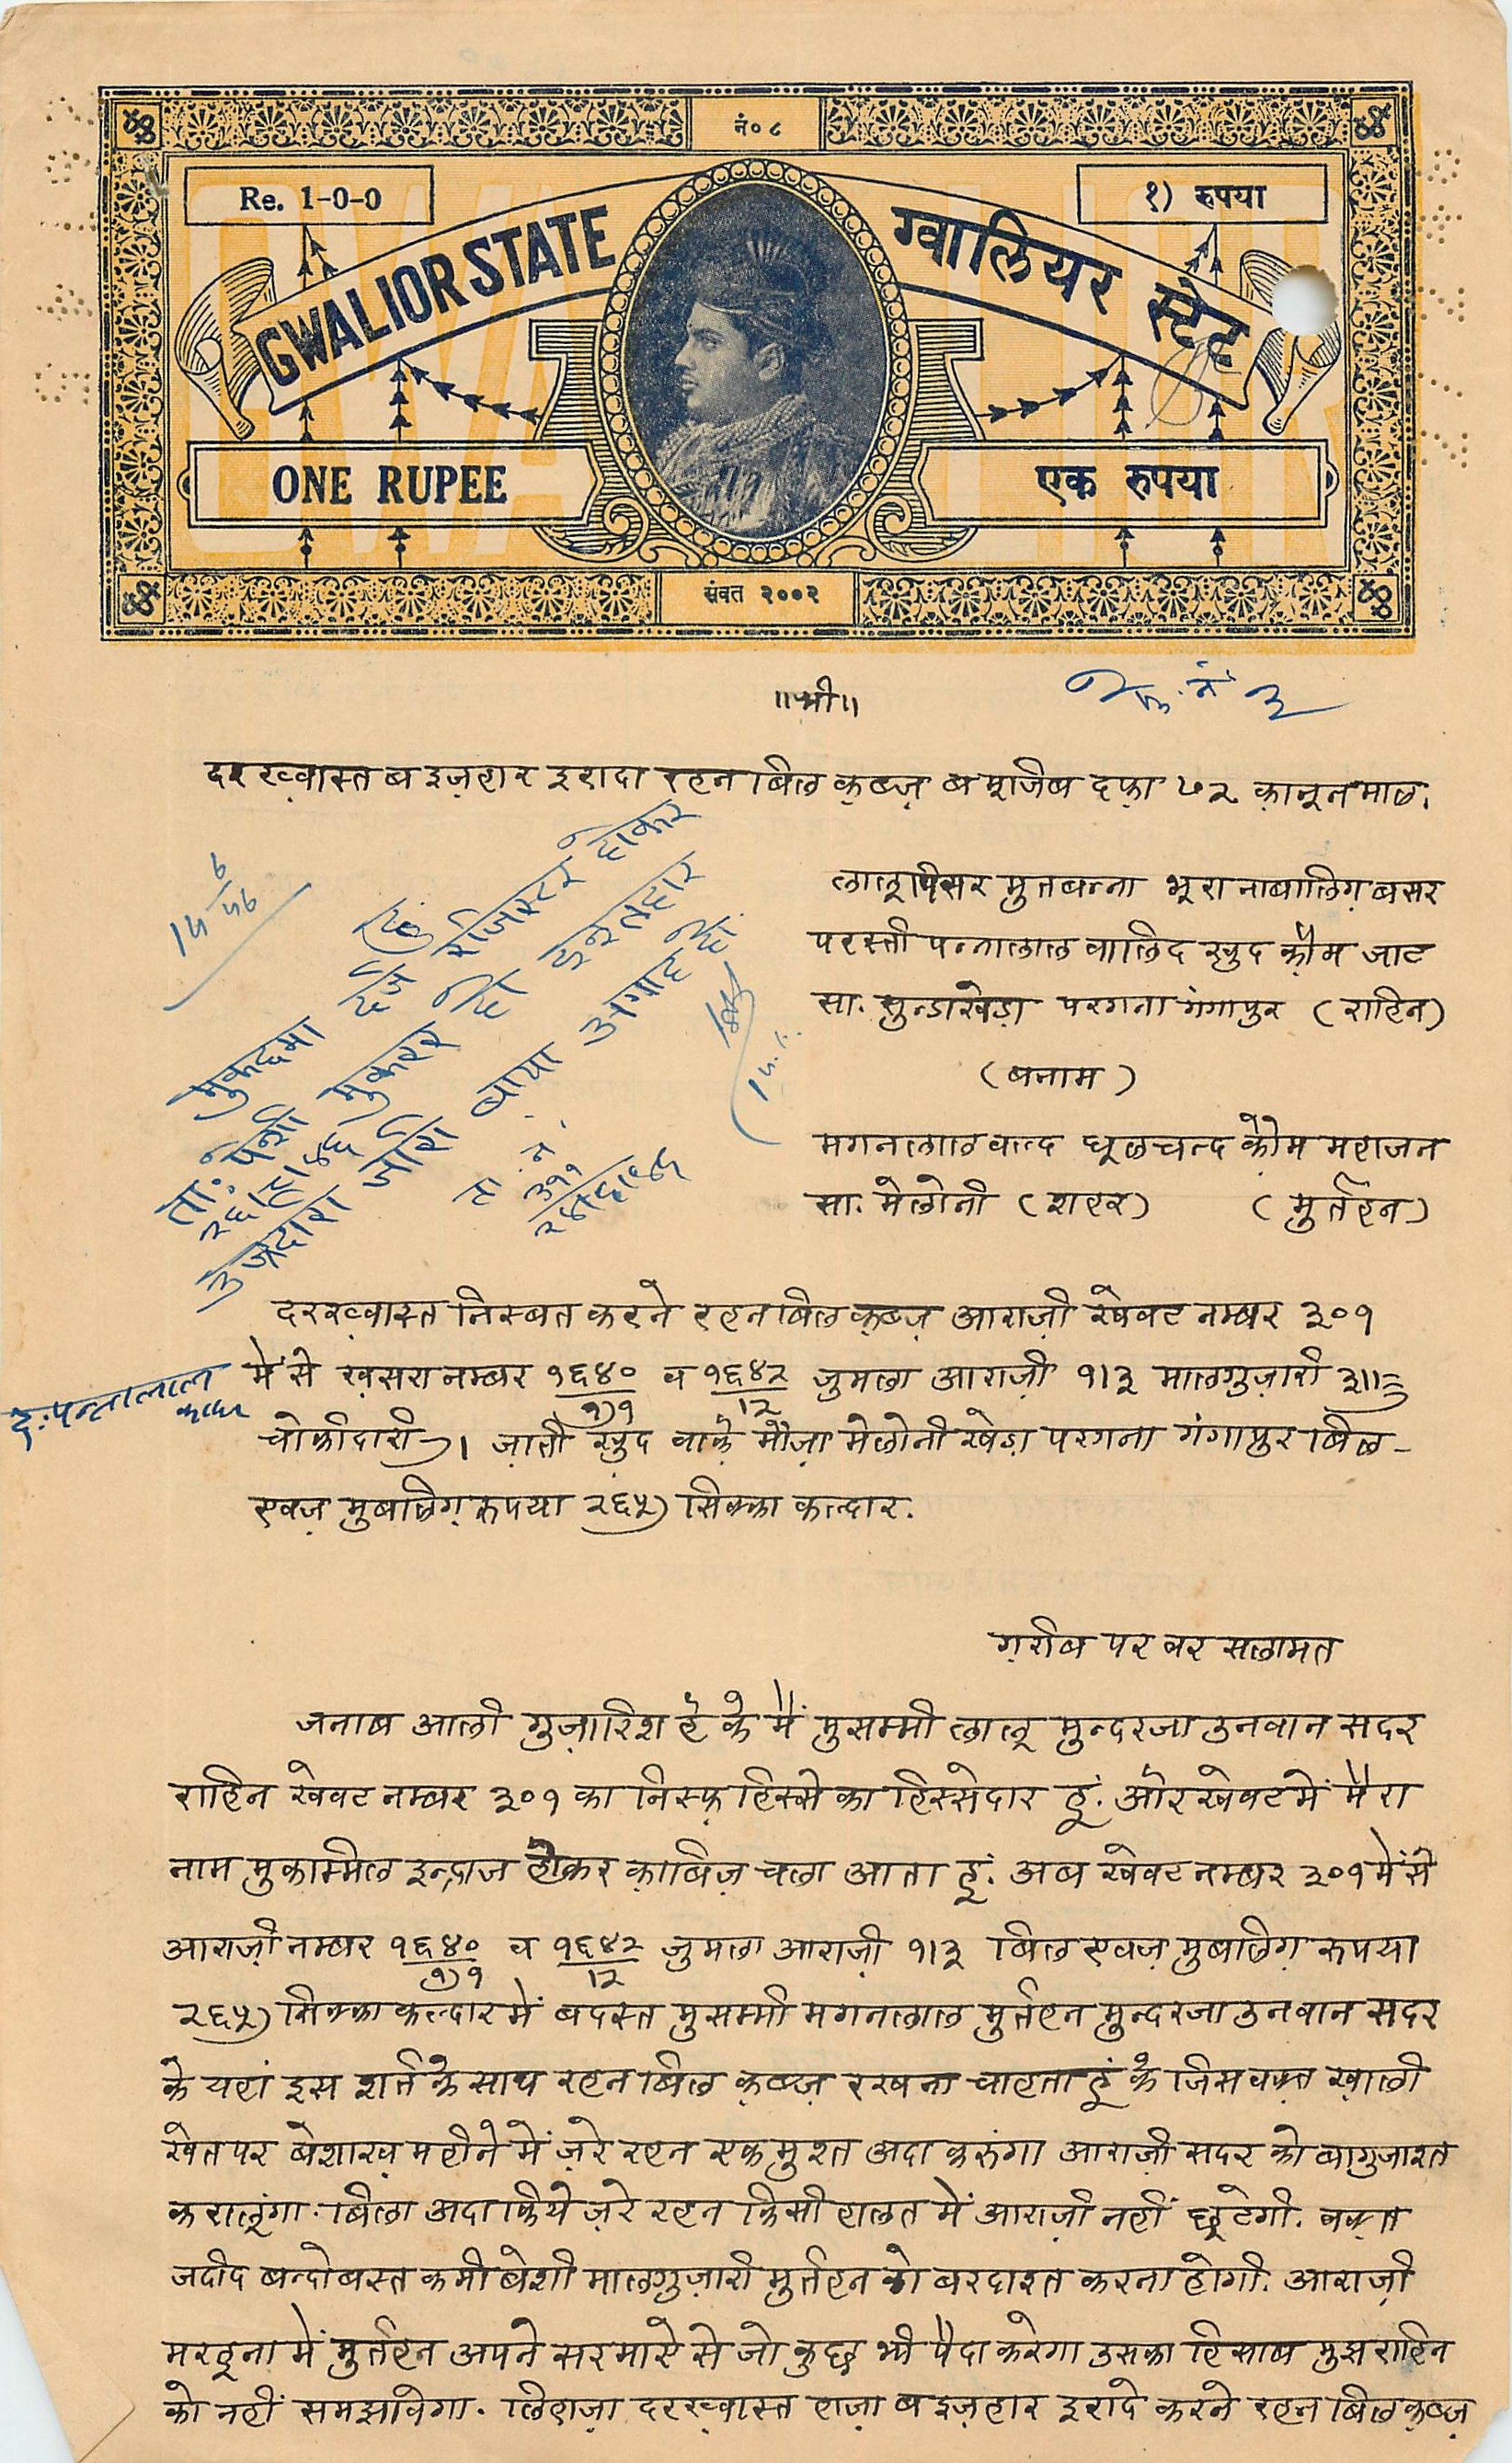 नं० ८
Re. 1-0-0
१) रुपया
GWALIOR STATE
ग्वालियर स्टेट
ONE RUPEE
एक रुपया
संवत २००२
॥श्री॥
दरख़्वास्त ब इज़हार इरादा रहन बिल क़ब्ज़ ब मूजिब दफ़ा ७२ क़ानून माल.
लालू पिसर मुतबन्ना भूरा नाबालिग़ बसर
परस्ती पन्नालाल वालिद ख़ुद क़ौम जाट
सा. मुन्डाखेड़ा परगना गंगापुर (राहिन)
(बनाम)
मगनलाल वल्द धूलचन्द क़ौम महाजन
सा. मेलोनी (शहर) (मुर्तहिन)
मुकद्दमा दर्ज रजिस्टर होकर
ता. पेशी मुकरर हो
इश्तहार
जारी
दरख़्वास्त निस्बत करने रहन बिल क़ब्ज़ आराज़ी खेवट नम्बर ३०१
में से ख़सरा नम्बर १६४० व १६४२ जुमला आराज़ी १।३ मालगुज़ारी
द: पन्नालाल
चोकीदारी ज़ाती ख़ुद वाक़े मौज़ा मेलोनी खेड़ा परगना गंगापुर बिल-
एवज़ मुबलिग़ रुपया २६५) सिक्का कल्दार.
ग़रीब पर वर सलामत
जनाब आली गुज़ारिश है के मैं मुसम्मी लालू मुन्दरजा उनवान सदर
राहिन खेवट नम्बर ३०१ का निस्फ़ हिस्से का हिस्सेदार हूं. और खेवट में मेरा
नाम मुकाम्मिल इन्द्राज होकर क़ाबिज़ चला आता हूं. अब खेवट नम्बर ३०१ में से
आराज़ी नम्बर १६४० व १६४२ जुमला आराज़ी १।३ बिल एवज़ मुबलिग़ रुपया
२६५) सिक्का कल्दार में बदस्त मुसम्मी मगनलाल मुर्तहिन मुन्दरजा उनवान सदर
के यहां इस शर्त के साथ रहन बिल क़ब्ज़ रखना चाहता हूं के जिस वक़्त ख़ाली
खेत पर बेशाख़ महीने में ज़रे रहन एक मुश्त अदा करुंगा आराज़ी सदर को बागुजाश्त
करालूंगा. बिला अदा किये ज़रे रहन किसी हालत में आराज़ी नहीं छूटेगी. वक़्त
जदीद बन्दोबस्त कमी बेशी मालगुज़ारी मुर्तहिन को बरदाश्त करना होगी. आराज़ी
मरहूना में मुर्तहिन अपने सरमाऐ से जो कुछ भी पैदा करेगा उसका हिसाब मुझ राहिन
को नहीं समझावेगा. लिहाज़ा दरख़्वास्त हाज़ा ब इज़हार इरादे करने रहन बिल क़ब्ज़